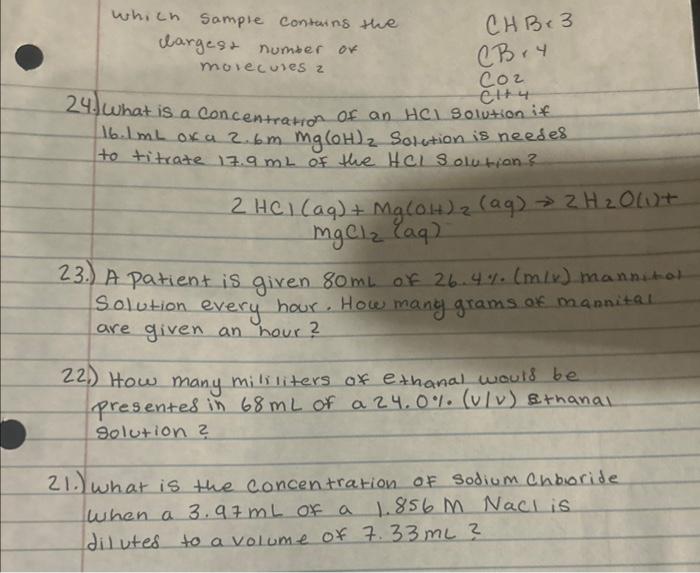 which sample contains the
largest number of
molecules?
CHBr3
CBr4
CO2
CH4
24.) What is a concentration of an HCl solution if
16.1mL of a 2.6m Mg(OH)2 Solution is needed
to titrate 17.9mL of the HCl Solution?
2 HCl (aq) + Mg(OH)2 (aq) → 2 H2O(l) +
MgCl2 (aq)
23.) A patient is given 80mL of 26.4%. (m/v) mannitol
Solution every hour. How many grams of mannital
are given an hour?
22.) How many mililiters of ethanal would be
presented in 68mL of a 24.0%. (v/v) Ethanal
Solution?
21.) what is the concentration of sodium Chboride
when a 3.97mL of a 1.856 M NaCl is
diluted to a volume of 7.33mL?